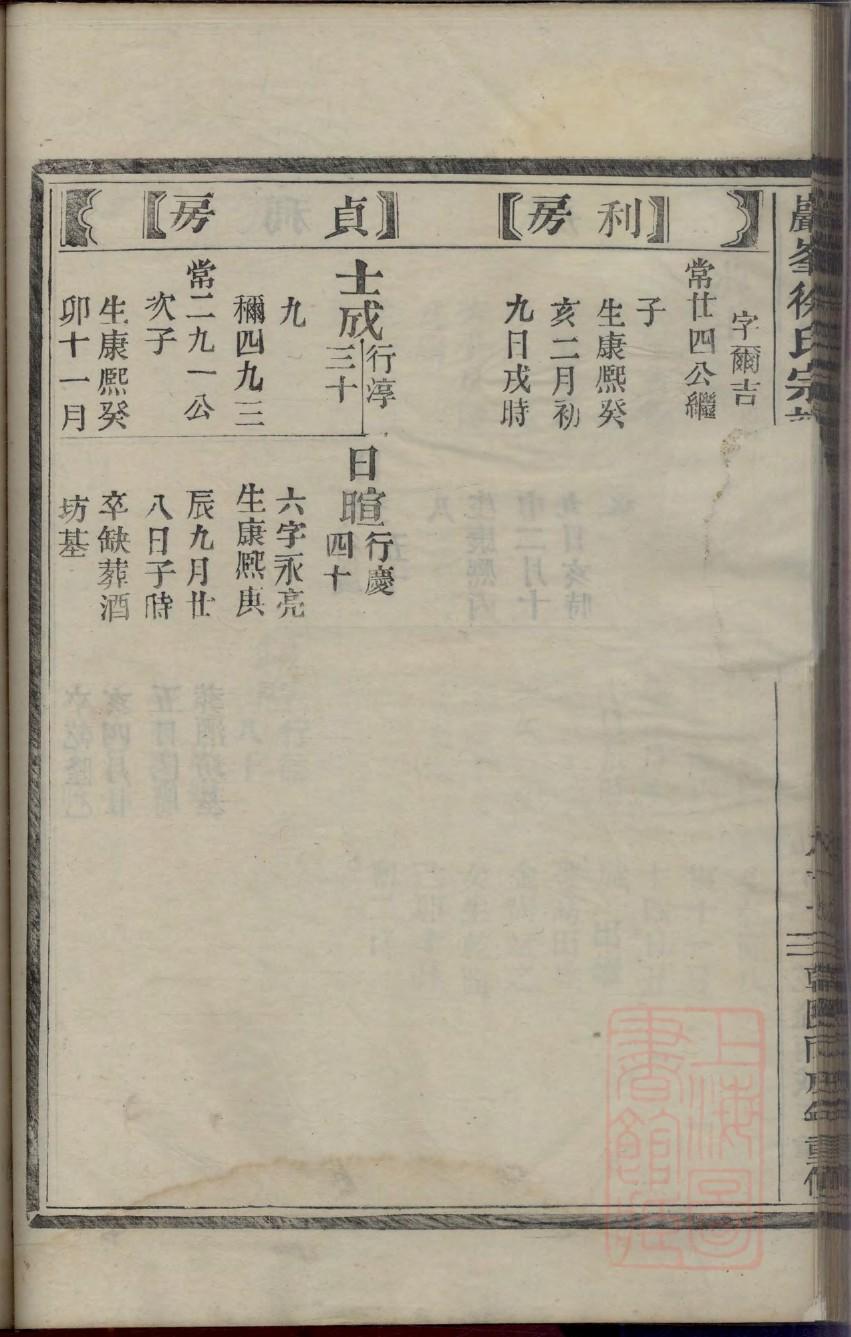 巖峯徐氏宗
利房
字爾吉
常廿四公繼
子
生康熙癸
亥二月初
九日戌時
貞房
士成
行淳
三十
九
穪四九三
常二九一公
次子
生康熙癸
卯十一月
日暄
行慶
四十
六字永亮
生康熙庚
辰九月廿
八日子時
卒缺葬酒
坊基
上海圖
書館藏